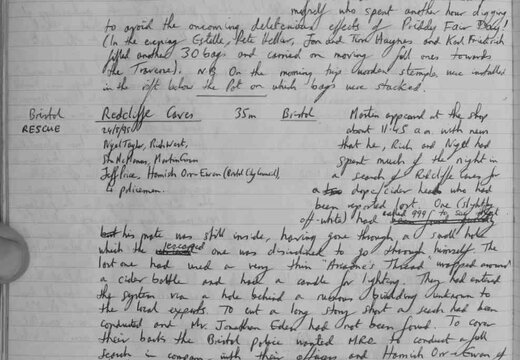 myself who spent another hour digging
to avoid the oncoming deleterious effects of Priddy Fair Day!
(In the evening Estelle, Pete Hellier, Jon and Tom Haynes and Karl Friedrich
filled another 30 bags and carried on moving full ones towards
the Traverse). N.B. On the morning trip wooden stemples were installed
in the rift below the Pot on which bags were stacked.
Bristol Redcliffe Caves 35m Bristol Morten appeared at the shop
RESCUE 24/8/95 about 11.45 a.m. with news
Nigel Taylor, Rich West, that he, Rich and Nigel had
Martin spent much of the night in
Jeff Price, Hamish Orr-Ewan (Bristol City Council), a search of Redcliffe Caves for
policemen. a dope/cider head who had
been reported lost. One (slightly
off-white) had called 999 to say that
his mate was still inside, having gone through a small hole
which the escaped one was disinclined to go through himself. The
lost one had used a very thin "Ariadne's Thread" wrapped around
a cider bottle and had a candle for lighting. They had entered
the system via a hole behind a ruinous building unknown to
the local experts. To cut a long story short a search had been
conducted and Mr. Jonathan Eden had not been found. To cover
their backs the Bristol police wanted MRO to conduct a full
search in company with their officers and Hamish Orr-Ewan of